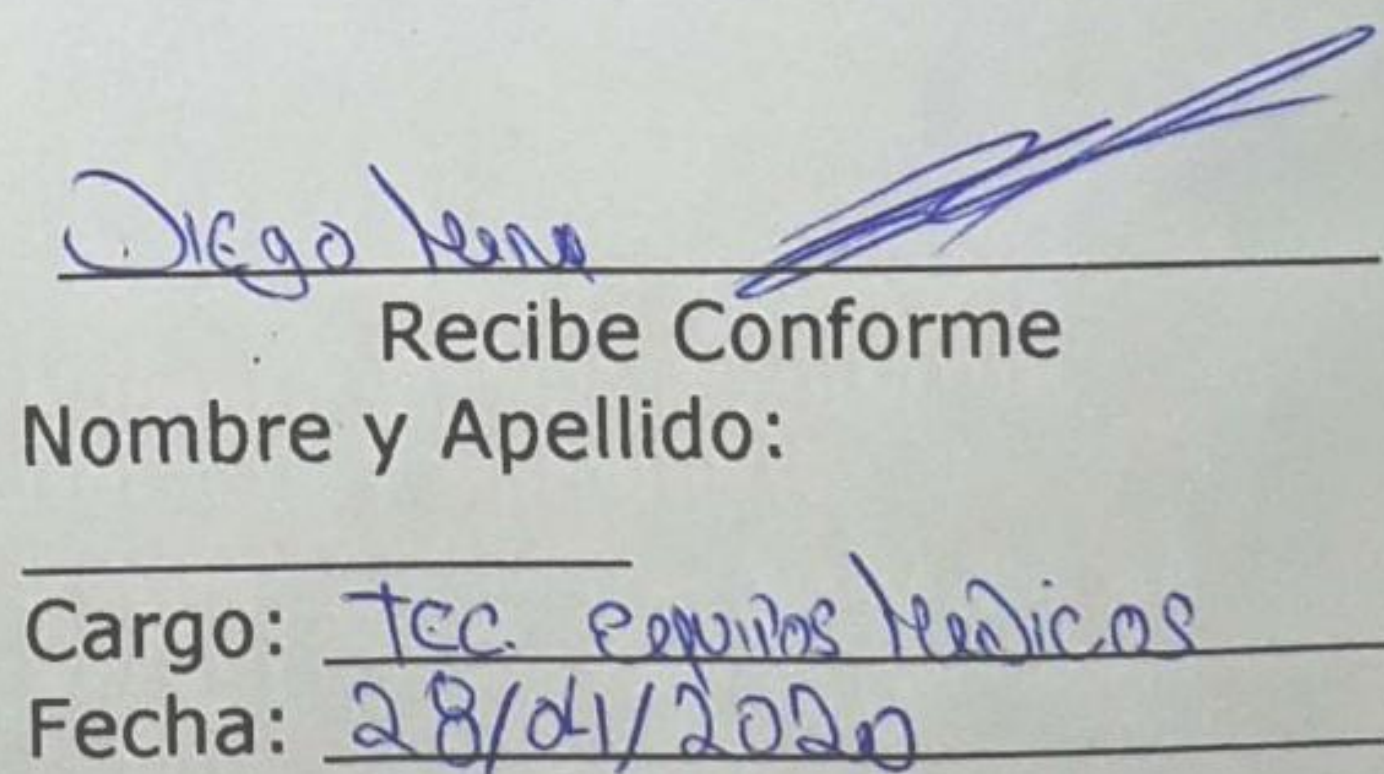 Diego Mena
Recibe Conforme
Nombre y Apellido:
Cargo: Tec. equipos Medicos
Fecha: 28/04/2020